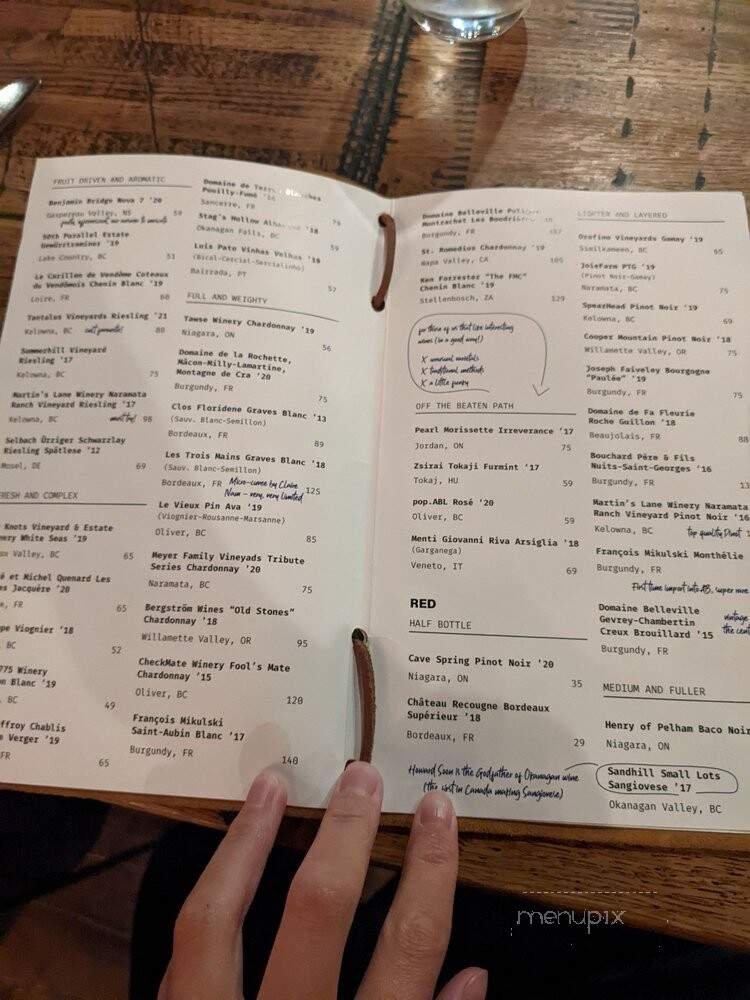 FRUIT DRIVEN AND AROMATIC
Benjamin Bridge Nova 7 '20
Gaspereau Valley, NS 59
50th Parallel Estate
Gewürztraminer '19
Lake Country, BC 51
Le Carillon de Vendôme Coteaux
du Vendômois Chenin Blanc '19
Loire, FR 60
Tantalus Vineyards Riesling '21
Kelowna, BC cult favourite! 80
Summerhill Vineyard
Riesling '17
Kelowna, BC 75
Martin's Lane Winery Naramata
Ranch Vineyard Riesling '17
Kelowna, BC must try! 98
Selbach Ürziger Schwarzlay
Riesling Spätlese '12
Mosel, DE 69
RESH AND COMPLEX
Knots Vineyard & Estate
nery White Seas '19
ox Valley, BC 65
é et Michel Quenard Les
es Jacquère '20
e, FR 65
pe Viognier '18
BC 52
775 Winery
on Blanc '19
, BC 49
ffroy Chablis
e Verger '19
FR 65
Domaine de Blanches
Pouilly-Fumé
Sancerre, FR 76
Stag's Hollow '18
Okanagan Falls, BC 59
Luis Pato Vinhas Velhas '18
(Bical-Cercial-Sercialinho)
Bairrada, PT 57
FULL AND WEIGHTY
Tawse Winery Chardonnay '19
Niagara, ON 56
Domaine de la Rochette,
Mâcon-Milly-Lamartine,
Montagne de Cra '20
Burgundy, FR 75
Clos Floridene Graves Blanc '13
(Sauv. Blanc-Semillon)
Bordeaux, FR 89
Les Trois Mains Graves Blanc '18
(Sauv. Blanc-Semillon)
Bordeaux, FR Micro-cuvee by Claire
Naun - very, very limited 125
Le Vieux Pin Ava '19
(Viognier-Rousanne-Marsanne)
Oliver, BC 85
Meyer Family Vineyads Tribute
Series Chardonnay '20
Naramata, BC 75
Bergström Wines "Old Stones"
Chardonnay '18
Willamette Valley, OR 95
CheckMate Winery Fool's Mate
Chardonnay '15
Oliver, BC 120
François Mikulski
Saint-Aubin Blanc '17
Burgundy, FR 140
Domaine Belleville
Montrachet Les
Burgundy, FR
St. Romedius Chardonnay '19
Napa Valley, CA 105
Ken Forrester "The FMC"
Chenin Blanc '19
Stellenbosch, ZA 129
for those of us that like interesting
wines (in a good way!)
X unusual varietals
X traditional methods
X a little funky
OFF THE BEATEN PATH
Pearl Morissette Irreverance '17
Jordan, ON 75
Zsirai Tokaji Furmint '17
Tokaj, HU 59
pop.ABL Rosé '20
Oliver, BC 59
Menti Giovanni Riva Arsiglia '18
(Garganega)
Veneto, IT 69
RED
HALF BOTTLE
Cave Spring Pinot Noir '20
Niagara, ON 35
Château Recougne Bordeaux
Supérieur '18
Bordeaux, FR 29
Howard Soon is the Godfather of Okanagan wine
(the first in Canada making Sangiovese)
LIGHTER AND LAYERED
Orofino Vineyards Gamay '19
Similkameen, BC 65
JoieFarm PTG '19
(Pinot Noir-Gamay)
Naramata, BC 75
SpearHead Pinot Noir '19
Kelowna, BC 69
Cooper Mountain Pinot Noir '18
Willamette Valley, OR 75
Joseph Faiveley Bourgogne
"Paulée" '19
Burgundy, FR 75
Domaine de Fa Fleurie
Roche Guillon '18
Beaujolais, FR 88
Bouchard Père & Fils
Nuits-Saint-Georges '16
Burgundy, FR 13
Martin's Lane Winery Naramata
Ranch Vineyard Pinot Noir '16
Kelowna, BC top quality Pinot
François Mikulski Monthélie
Burgundy, FR
First time import into AB, super rare
Domaine Belleville
Gevrey-Chambertin
Creux Brouillard '15
vintage
the cent
Burgundy, FR
MEDIUM AND FULLER
Henry of Pelham Baco Noir
Niagara, ON
Sandhill Small Lots
Sangiovese '17
Okanagan Valley, BC
menupix